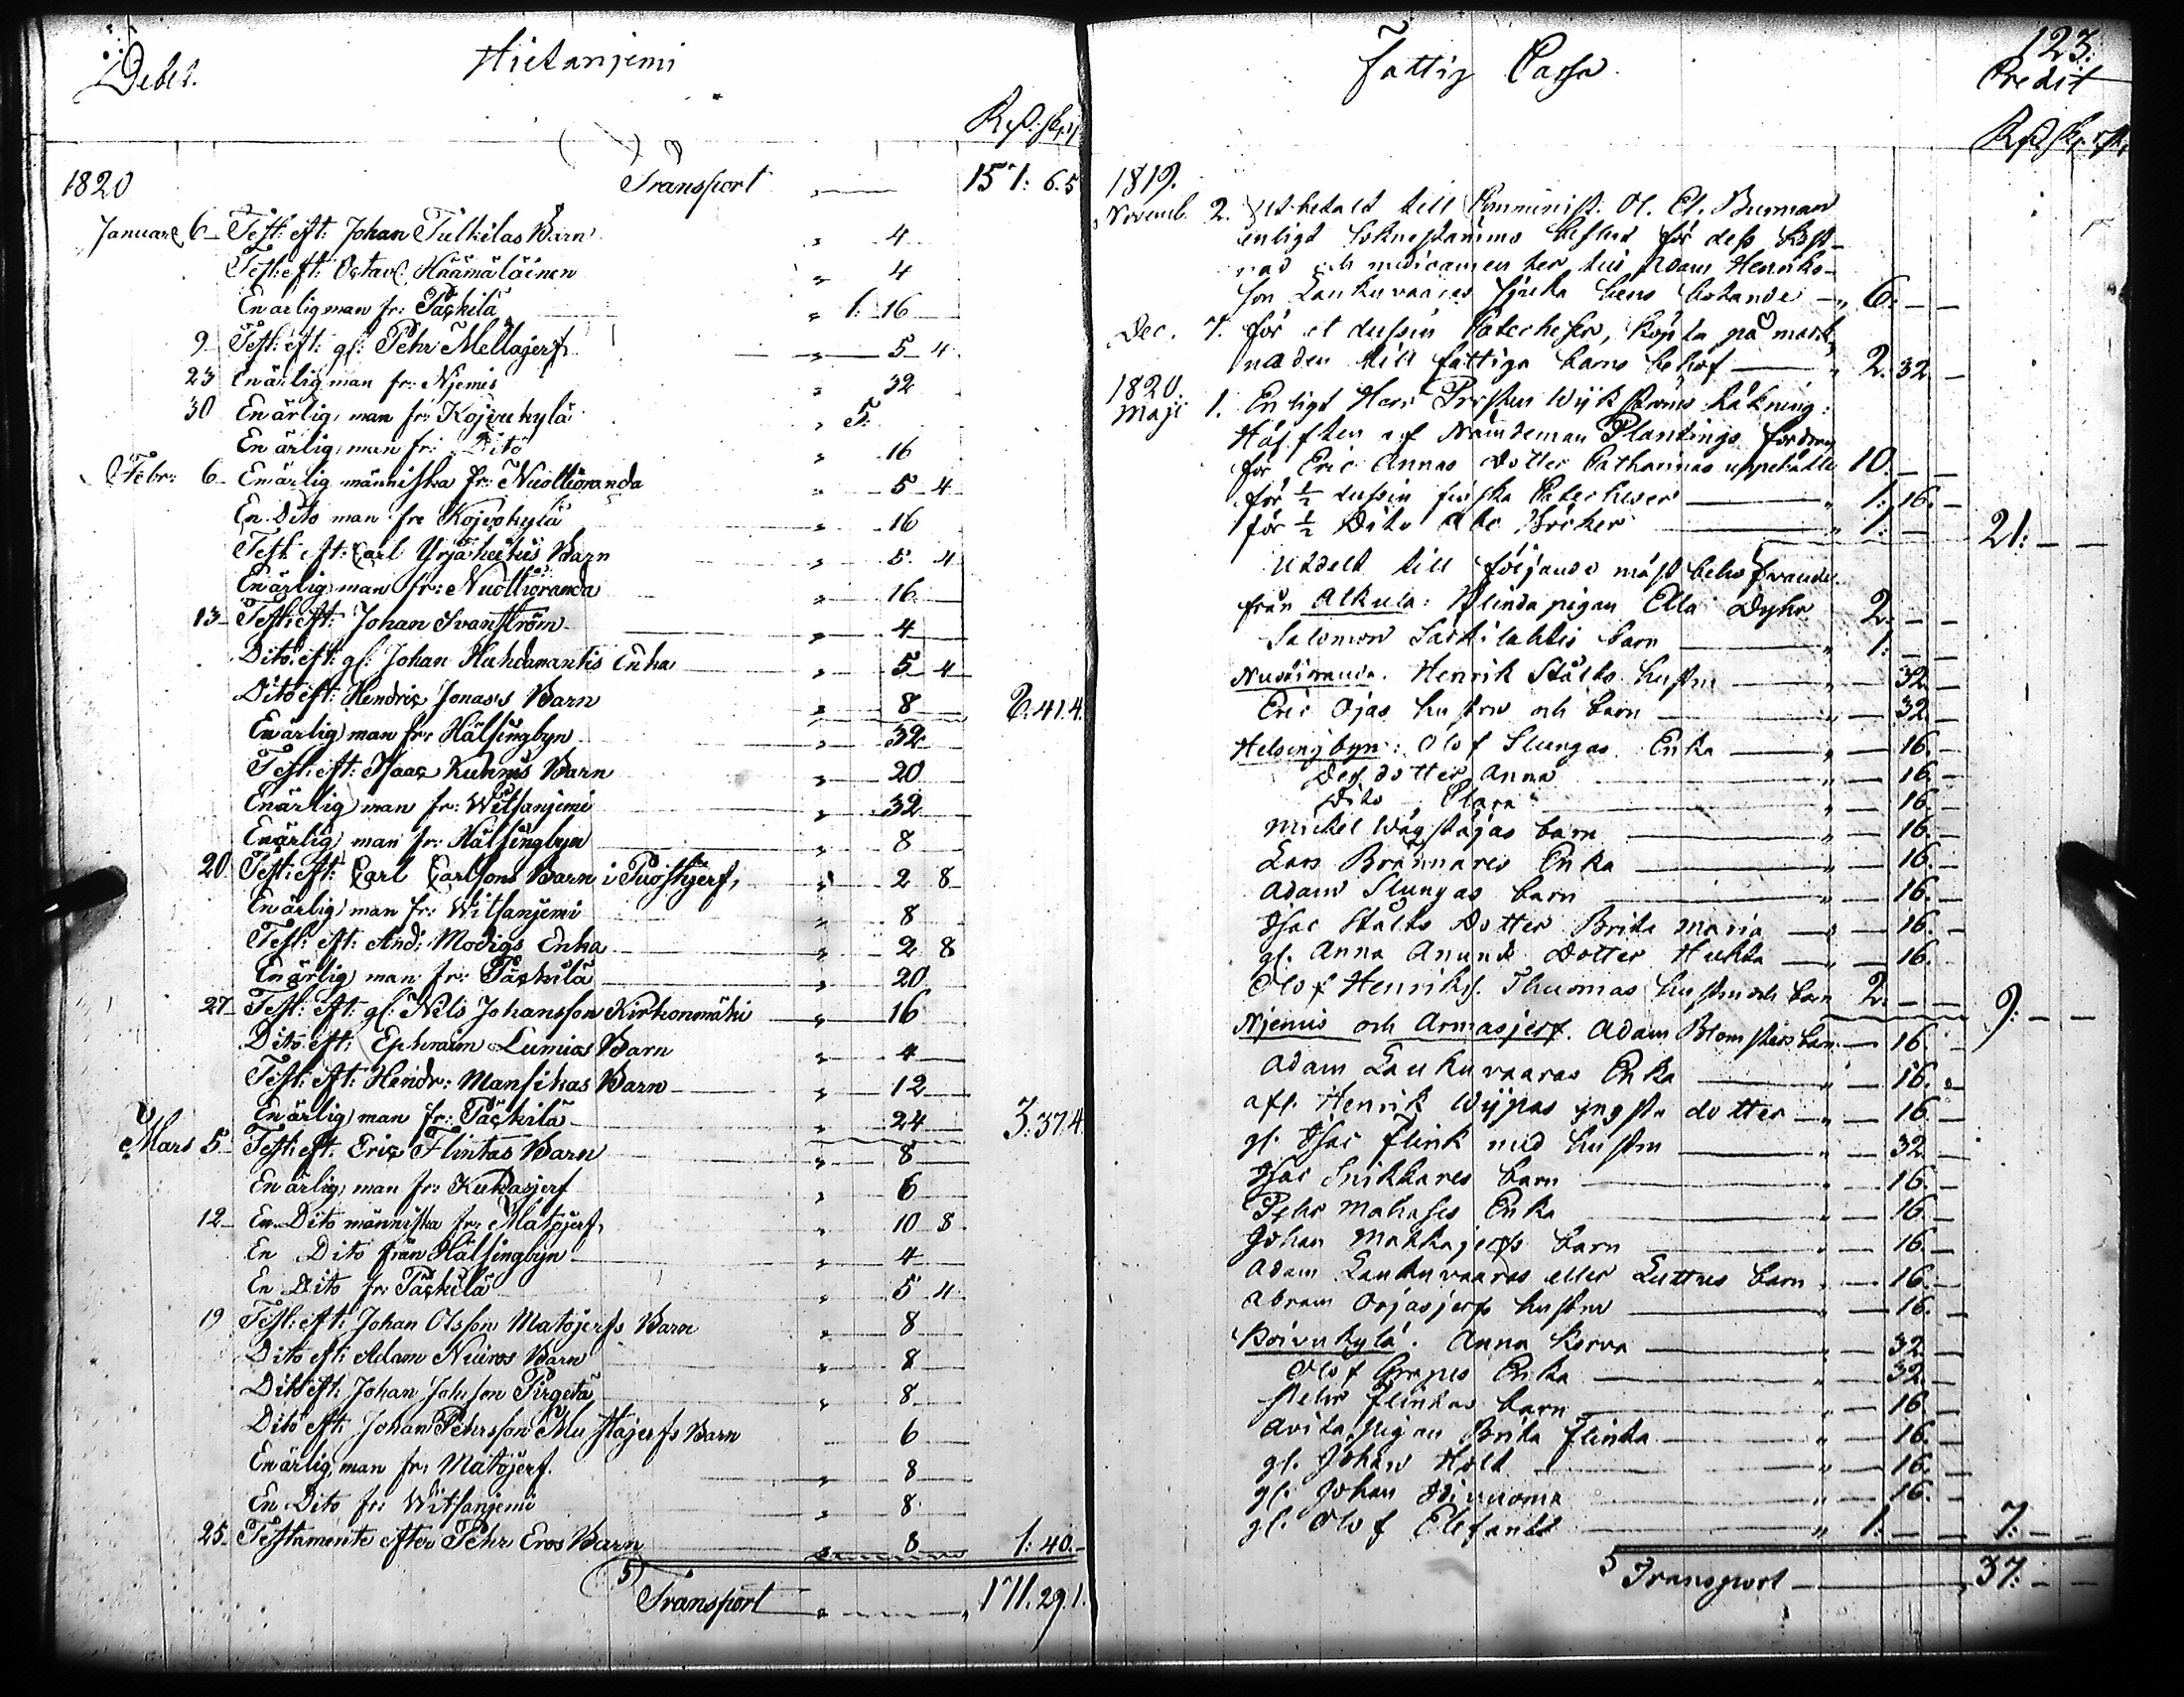 Debet. Hietaniemi
Rgs: sk: r
1820 Transport " 151: 6. 5
Januari 6 Test: eft: Johan Tulkilas Barn " 4
Test: eft: Gustav Häämäläinen " 4
En ärlig man fr: Päckilä " 1: 16
9 Test: eft: gl: Pehr Mellajerf " 5 4
23 En ärlig man fr: Njemis " 32
30 En ärlig man fr: Kojvukylä " 5:
En ärlig man fr: Dito " 16
Febr: 6 En ärlig människa fr: Nuottioranda " 5 4
En Dito man fr: Kojvokylä " 16
Test: eft: Carl Yrjäheikis Barn " 5 4
En ärlig man fr: Nuottioranda " 16
13 Test: eft: Johan Svanström " 4
Dito eft: gl: Johan Huhdamantis Enka " 5 4
Dito eft: Hendric Jonas's Barn " 8 6. 41. 4.
En ärlig man fr: Hälsingbyn " 32
Test: eft: Isaac Kuhnis Barn " 20
En ärlig man fr: Witsanjemi " 32
En ärlig man fr: Hälsingbyn " 8
20 Test: eft: Carl Carlsons Barn i Puoskjerf, " 2 8
En ärlig man fr: Witsanjemi " 8
Test: eft: And: Modigs Enka " 2 8
En ärlig man fr: Päckilä " 20
27 Test: eft: gl: Nils Johansson Kirkonmäki " 16
Dito eft: Ephraim Lumias Barn " 4
Test: eft: Hendr: Mansikas Barn " 12
En ärlig man fr: Päckilä " 24 3: 37. 4.
Mars 5 Test: eft: Eric Flinkas Barn " 8
En ärlig man fr: Kuckasjerf " 6
12 En Dito människa fr: Matojerf, " 10 8
En Dito från Hälsingbyn " 4
En Dito fr: Päckilä " 5 4
19 Test: eft: Johan Olsson Matojerfs Barn " 8
Dito eft: Adam Niuros Barn " 8
Dito eft: Johan Johsson Pirgetä " 8
Dito eft: Johan Pehrsson Mustajerfs Barn 6
En ärlig man fr: Matojerf. " 8
En Dito fr: Witsanjemi " 8
25 Testamente efter Pehr Eros Barn " 8 1: 40. -
5 Transport " 171. 29. 1.
123.
Fattig Cassa Credit
Rgd sk. rst
1819.
Novemb. 2. Utbetalt till Comminist. Ol. El. Burman
enligt Soknestämmo beslut för dess kost-
nad och medicamenter till Adam Henriks-
son Laukuvaaras sjuka bens botande " 6: -
Dec. 7. för et dussin Catecheser, köpta på mark-
naden till fattiga barns behof " 2. 32. -
1820.
Maji 1. Enligt Herr Prosten Wijkströms Räkning:
Hälften af Nämdeman Plantings fordran
för Eric Annas Dotter Catharinas uppehälle 10. -
för ½ dussin finska Catecheser " 1: 16. -
för ½ Dito Abc Böcker " 1: - 21: - -
Utdelt till följande mäst behöfvande
från Alkula: Blinda pigan Ella Dyhr 2. - -
Salomon Lackilahtis barn " 1: - -
Nuotioranda. Henrik Stålts hustru " 32 -
Eric Ojas hustru och barn " 32 -
Helsingbyn: Olof Slungas Enka " 16. -
Dess dotter Anna " 16 -
Dito " Clara " 16. -
Michel Wägstöjas barn " 16. -
Lars Brännares Enka " 16. -
Adam Slungas barn " 16. -
Isac Stålts Dotter Brita Maria " 16. -
gl. Anna Anunds Dotter Huhta " 16. -
Olof Henriks. Thuomas hustru och barn 2. - - 9: - -
Njemis och Armasjerf. Adam Blomsters barn 16. -
Adam Laukuvaaras Enka " 16. -
afl. Henrik Wijpas yngsta dotter " 16. -
gl. Isac Flink med hustru " 32 -
Isac Snikkares barn " 16. -
Pehr Mahases Enka " 16. -
Johan Matkajerfs barn " 16. -
Adam Laukuvaaras eller Luttus barn " 16. -
Abram Orjasjerfs hustru " 16. -
Koivukylä. Anna Korva " 32 -
Olof Grapes Enka " 32 -
Pehr Flinkas barn " 16. -
Avita pigan Brita Flinka " 16. -
gl. Johan Holt " 16. -
gl. Johan " 16. -
gl. Olof Elefandt " 1: - - 7: - -
5 Transport 37: - -